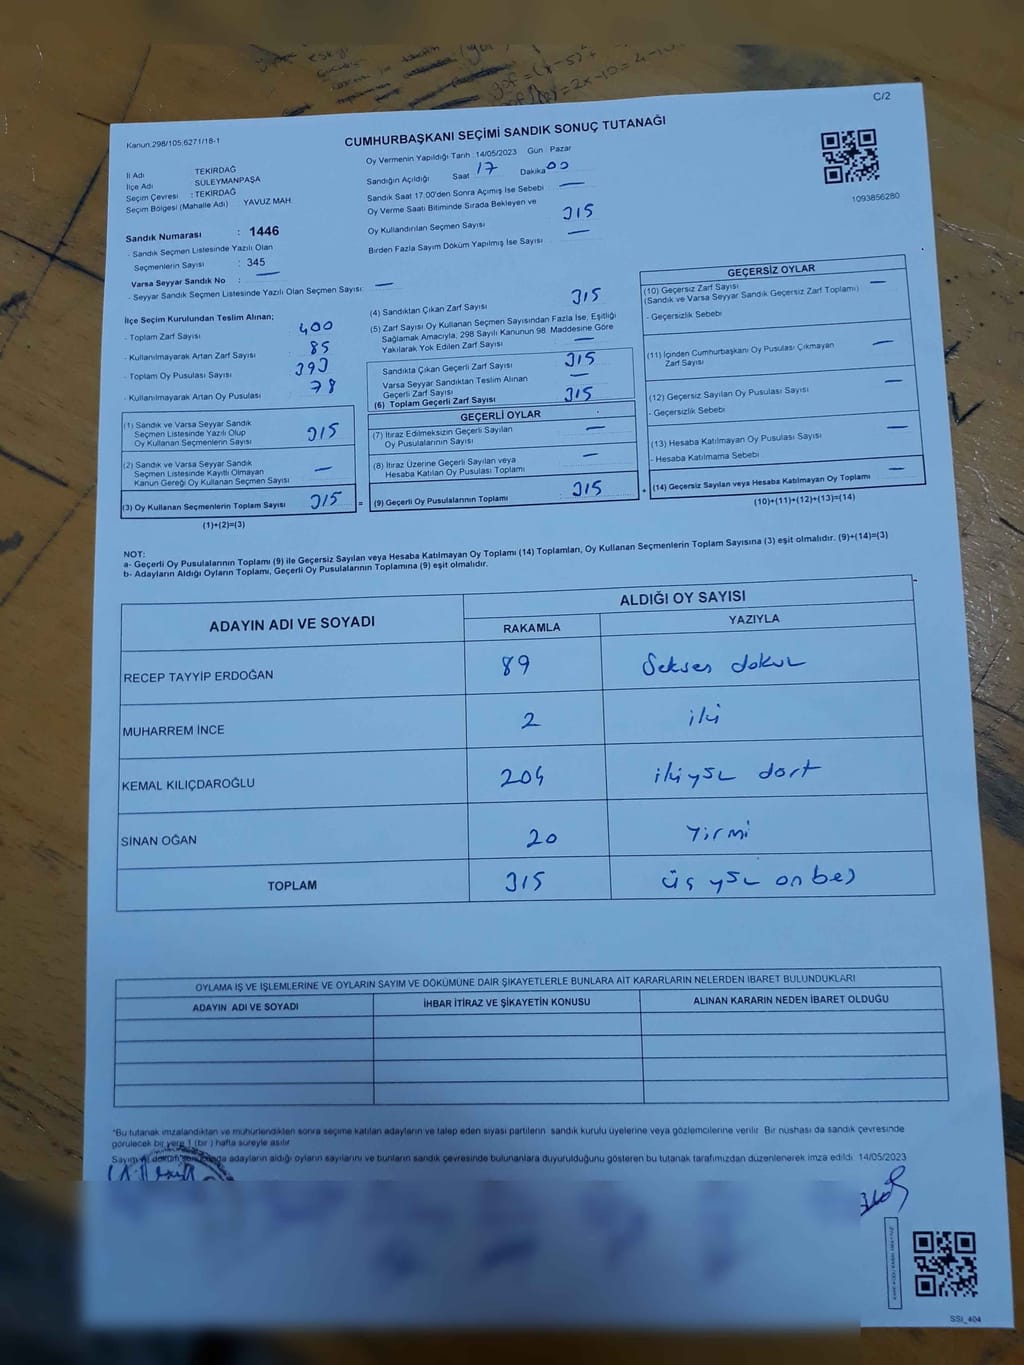 C/2
Kanun.298/105;6271/18-1
CUMHURBAŞKANI SEÇİMİ SANDIK SONUÇ TUTANAĞI
İl Adı TEKİRDAĞ
İlçe Adı SÜLEYMANPAŞA
Seçim Çevresi : TEKİRDAĞ
Seçim Bölgesi (Mahalle Adı) YAVUZ MAH.
Sandık Numarası : 1446
- Sandık Seçmen Listesinde Yazılı Olan
Seçmenlerin Sayısı : 345
Varsa Seyyar Sandık No : —
- Seyyar Sandık Seçmen Listesinde Yazılı Olan Seçmen Sayısı: —
Oy Vermenin Yapıldığı Tarih : 14/05/2023 Gün Pazar
Sandığın Açıldığı Saat 17 Dakika 00
Sandık Saat 17:00'den Sonra Açımış İse Sebebi —
Oy Verme Saati Bitiminde Sırada Bekleyen ve
Oy Kullandırılan Seçmen Sayısı 315
Birden Fazla Sayım Döküm Yapılmış İse Sayısı —
1093856280
İlçe Seçim Kurulundan Teslim Alınan;
- Toplam Zarf Sayısı : 400
- Kullanılmayarak Artan Zarf Sayısı : 85
- Toplam Oy Pusulası Sayısı : 393
- Kullanılmayarak Artan Oy Pusulası : 78
(1) Sandık ve Varsa Seyyar Sandık
Seçmen Listesinde Yazılı Olup
Oy Kullanan Seçmenlerin Sayısı 315
(2) Sandık ve Varsa Seyyar Sandık
Seçmen Listesinde Kayıtlı Olmayan
Kanun Gereği Oy Kullanan Seçmen Sayısı —
(3) Oy Kullanan Seçmenlerin Toplam Sayısı 315 =
(1)+(2)=(3)
(4) Sandıktan Çıkan Zarf Sayısı 315
(5) Zarf Sayısı Oy Kullanan Seçmen Sayısından Fazla İse, Eşitliği
Sağlamak Amacıyla, 298 Sayılı Kanunun 98. Maddesine Göre
Yakılarak Yok Edilen Zarf Sayısı —
Sandıkta Çıkan Geçerli Zarf Sayısı 315
Varsa Seyyar Sandıktan Teslim Alınan
Geçerli Zarf Sayısı —
(6) Toplam Geçerli Zarf Sayısı 315
GEÇERLİ OYLAR
(7) İtiraz Edilmeksizin Geçerli Sayılan
Oy Pusulalarının Sayısı —
(8) İtiraz Üzerine Geçerli Sayılan veya
Hesaba Katılan Oy Pusulası Toplamı —
(9) Geçerli Oy Pusulalarının Toplamı : 315 +
GEÇERSİZ OYLAR
(10) Geçersiz Zarf Sayısı —
(Sandık ve Varsa Seyyar Sandık Geçersiz Zarf Toplamı)
- Geçersizlik Sebebi
(11) İçinden Cumhurbaşkanı Oy Pusulası Çıkmayan
Zarf Sayısı —
(12) Geçersiz Sayılan Oy Pusulası Sayısı —
- Geçersizlik Sebebi
(13) Hesaba Katılmayan Oy Pusulası Sayısı —
- Hesaba Katılmama Sebebi
(14) Geçersiz Sayılan veya Hesaba Katılmayan Oy Toplamı —
(10)+(11)+(12)+(13)=(14)
NOT:
a- Geçerli Oy Pusulalarının Toplamı (9) ile Geçersiz Sayılan veya Hesaba Katılmayan Oy Toplamı (14) Toplamları, Oy Kullanan Seçmenlerin Toplam Sayısına (3) eşit olmalıdır. (9)+(14)=(3)
b- Adayların Aldığı Oyların Toplamı, Geçerli Oy Pusulalarının Toplamına (9) eşit olmalıdır.
ADAYIN ADI VE SOYADI ALDIĞI OY SAYISI
RAKAMLA YAZIYLA
RECEP TAYYİP ERDOĞAN 89 Seksen dokuz
MUHARREM İNCE 2 iki
KEMAL KILIÇDAROĞLU 204 ikiyüz dört
SİNAN OĞAN 20 Yirmi
TOPLAM 315 üç yüz onbeş
OYLAMA İŞ VE İŞLEMLERİNE VE OYLARIN SAYIM VE DÖKÜMÜNE DAİR ŞİKAYETLERLE BUNLARA AİT KARARLARIN NELERDEN İBARET BULUNDUKLARI
ADAYIN ADI VE SOYADI İHBAR İTİRAZ VE ŞİKAYETİN KONUSU ALINAN KARARIN NEDEN İBARET OLDUĞU
*Bu tutanak imzalandıktan ve mühürlendikten sonra seçime katılan adayların ve talep eden siyasi partilerin sandık kurulu üyelerine veya gözlemcilerine verilir. Bir nüshası da sandık çevresinde
görülecek bir yere 1 (bir) hafta süreyle asılır
adayların aldığı oyların sayılarını ve bunların sandık çevresinde bulunanlara duyurulduğunu gösteren bu tutanak tarafımızdan düzenlenerek imza edildi. 14/05/2023
SSİ_404